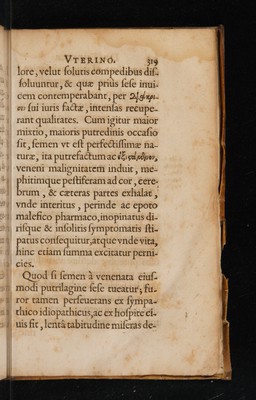 VTERINO. 319
lore, velut solutis compedibus dis-
soluuntur, & quæ priùs sese inui-
cem contemperabant, per διάκρι-
σιν sui iuris factæ, intensas recupe-
rant qualitates. Cum igitur maior
mixtio, maioris putredinis occasio
sit, semen vt est perfectissimæ na-
turæ, ita putrefactum ac
veneni malignitatem induit, me-
phitimque pestiferam ad cor, cere-
brum, & cæteras partes exhalat,
vnde interitus, perinde ac epoto
malefico pharmaco, inopinatus di-
risque & insolitis symptomatis sti-
patus consequitur, atque vnde vita,
hinc etiam summa excitatur perni-
cies.
Quod si semen à venenata eius-
modi putrilagine sese tueatur; fu-
ror tamen perseuerans ex sympa-
thico idiopathicus, ac ex hospite ci-
uis fit, lentâ tabitudine miseras de-